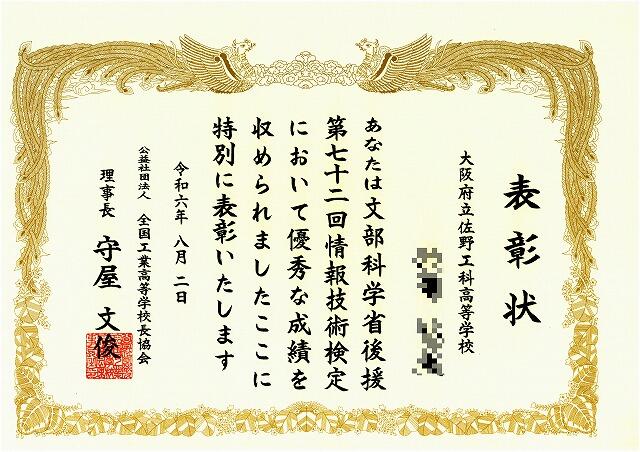 表彰状
大阪府立佐野工科高等学校
あなたは文部科学省後援
第七十二回情報技術検定
において優秀な成績を
収められましたここに
特別に表彰いたします
令和六年八月二日
公益社団法人 全国工業高等学校長協会
理事長 守屋文俊